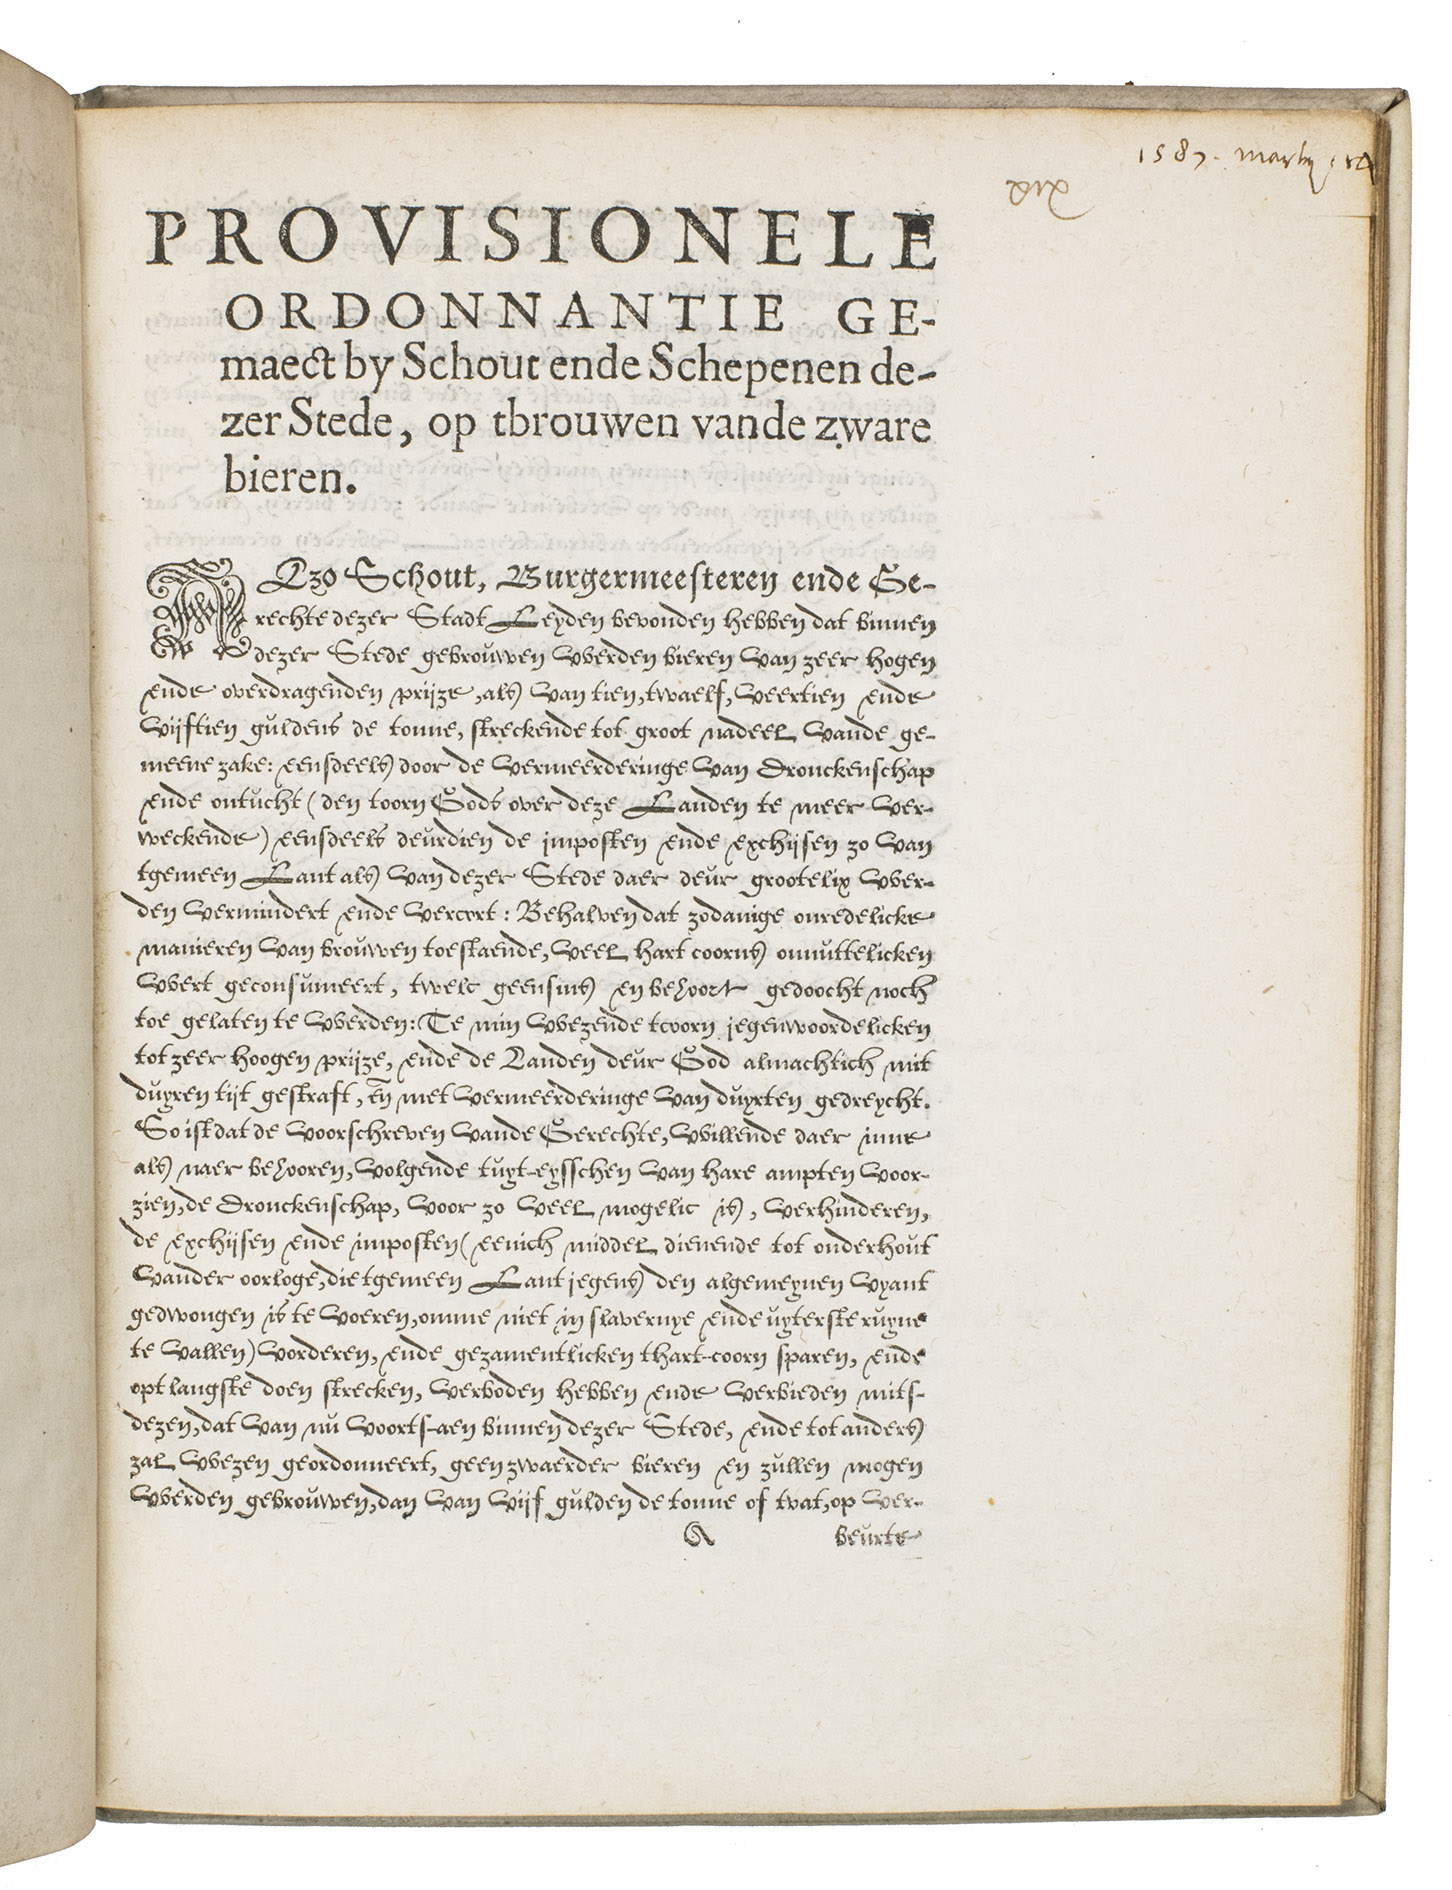 1587. Martij 14
xix
PROVISIONELE
ORDONNANTIE GE-
maect by Schout ende Schepenen de-
zer Stede, op tbrouwen vande zware
bieren.
Alzo Schout, Burgermeesteren ende Ge-
rechte dezer Stadt Leyden bevonden hebben dat binnen
dezer Stede gebrouwen vverden bieren van zeer hogen
ende overdragenden prijze, als van tien, twaelf, veertien ende
vijftien guldens de tonne, streckende tot groot nadeel vande ge-
meene zake: eensdeels door de vermeerderinge van dronckenschap
ende ontucht (den toorn Gods over deze Landen te meer ver-
weckende) eensdeels deurdien de imposten ende exchijsen zo van
tgemeen Lant als van dezer Stede daer deur grootelix vver-
den vermindert ende vercort: Behalven dat zodanige onredelicke
manieren van brouwen toestaende, veel hart coorns onnuttelicken
vvert geconsumeert, twelc geensins en behoort gedoocht noch
toe gelaten te vverden: Te min vvezende tcoorn jegenwoordelicken
tot zeer hoogen prijze, ende de Landen deur God almachtich mit
duyren tijt gestraft, eñ met vermeerderinge van duyrten gedreycht.
So ist dat de voorschreven vande Gerechte, vvillende daer inne
als naer behooren, volgende tuyt-eysschen van hare ampten voor-
zien, de dronckenschap, voor zo veel mogelic is, verhinderen,
de exchijsen ende imposten (eenich middel dienende tot onderhout
vander oorloge, die tgemeen Lant jegens den algemeynen vyant
gedwongen is te voeren, omme niet in slavernye ende uyterste ruyne
te vallen) vorderen, ende gezamentlicken thart-coorn sparen, ende
opt langste doen strecken, verboden hebben ende verbieden mits-
dezen, dat van nu voorts-aen binnen dezer Stede, ende tot anders
zal vvezen geordonneert, geen zwaerder bieren en zullen mogen
vverden gebrouwen, dan van vijf gulden de tonne of tvat, op ver-
A beurte